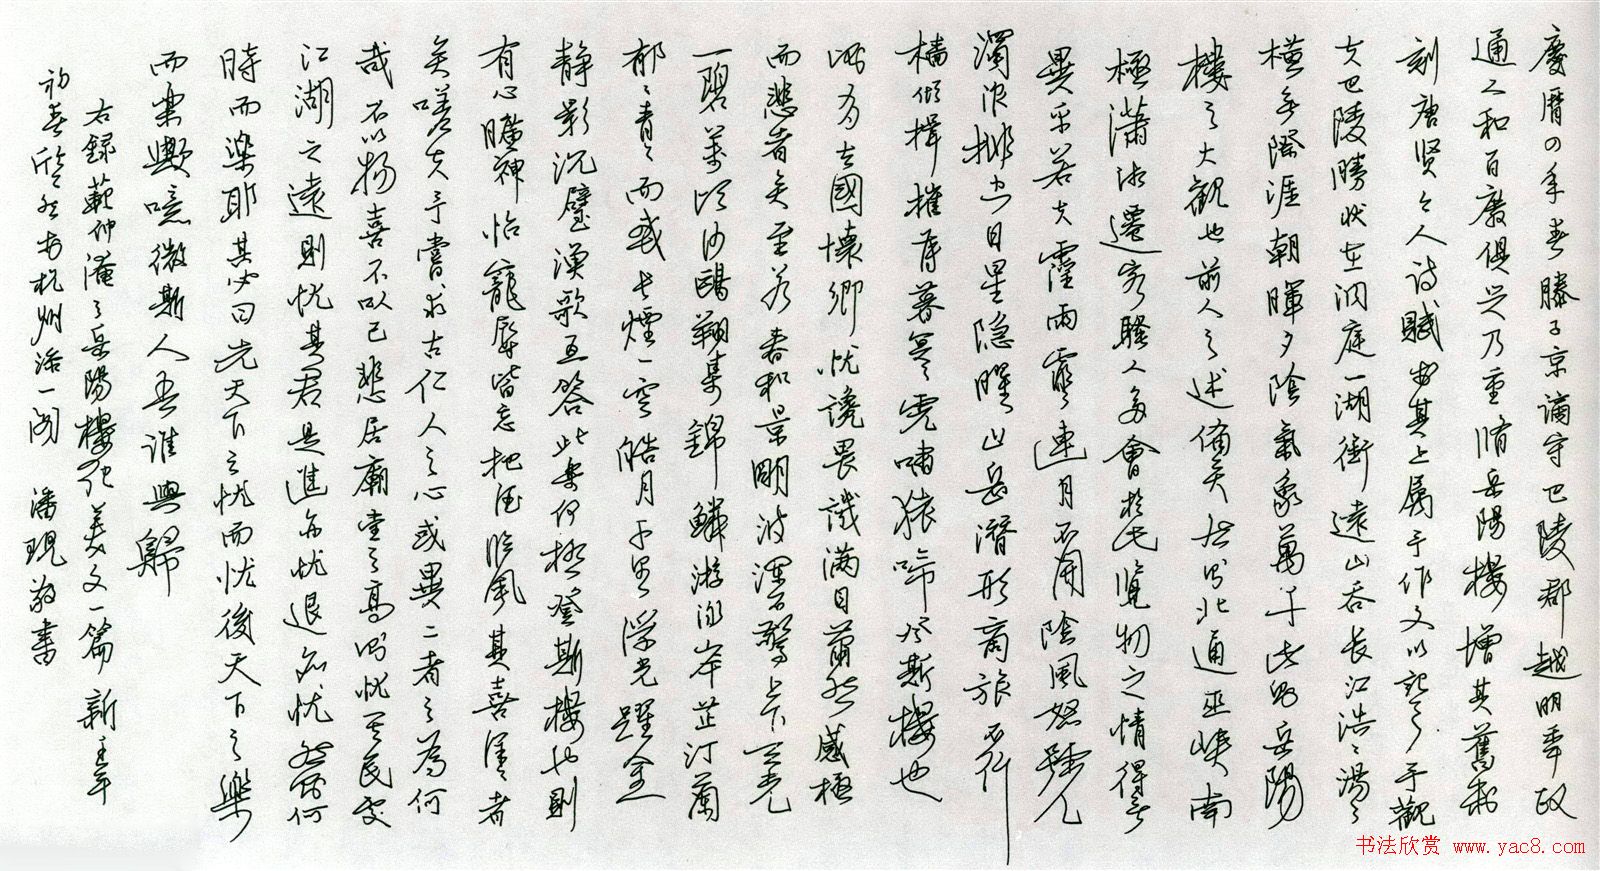 慶曆四年春滕子京謫守巴陵郡越明年政
通人和百廢俱興乃重脩岳陽樓增其舊制
刻唐賢今人詩賦於其上屬予作文以記之予觀
夫巴陵勝狀在洞庭一湖銜遠山吞长江浩〻湯〻
橫無際涯朝暉夕陰氣象萬千此則岳陽
樓之大觀也前人之述俻矣然則北通巫峽南
極瀟湘遷客騷人多會於此覽物之情得無
異乎若夫霪雨霏〻連月不開陰風怒號
濁浪排空日星隐曜山岳潛形商旅不行
檣傾楫摧薄暮冥〻虎嘯猿啼登斯樓也
則有去國懷鄉忧讒畏譏满目蕭然感極
而悲者矣至若春和景明波瀾不驚上下天光
一碧萬頃沙鷗翔集錦鱗游泳岸芷汀蘭
郁〻青〻而或长煙一空皓月千里浮光躍金
静影沉璧漁歌互答此樂何極登斯樓也則
有心曠神怡寵辱皆忘把酒临風其喜洋〻者
矣嗟夫予嘗求古仁人之心或異二者之為何
哉不以物喜不以己悲居廟堂之高則忧其民處
江湖之遠則忧其君是進亦忧退亦忧然則何
時而樂耶其必曰先天下之忧而忧後天下之樂
而樂歟噫微斯人吾誰與歸
右録范仲淹之岳陽樓記美文一篇 新
初春於杭州浩一阁 潘现敬書
书法欣赏 www.yac8.com